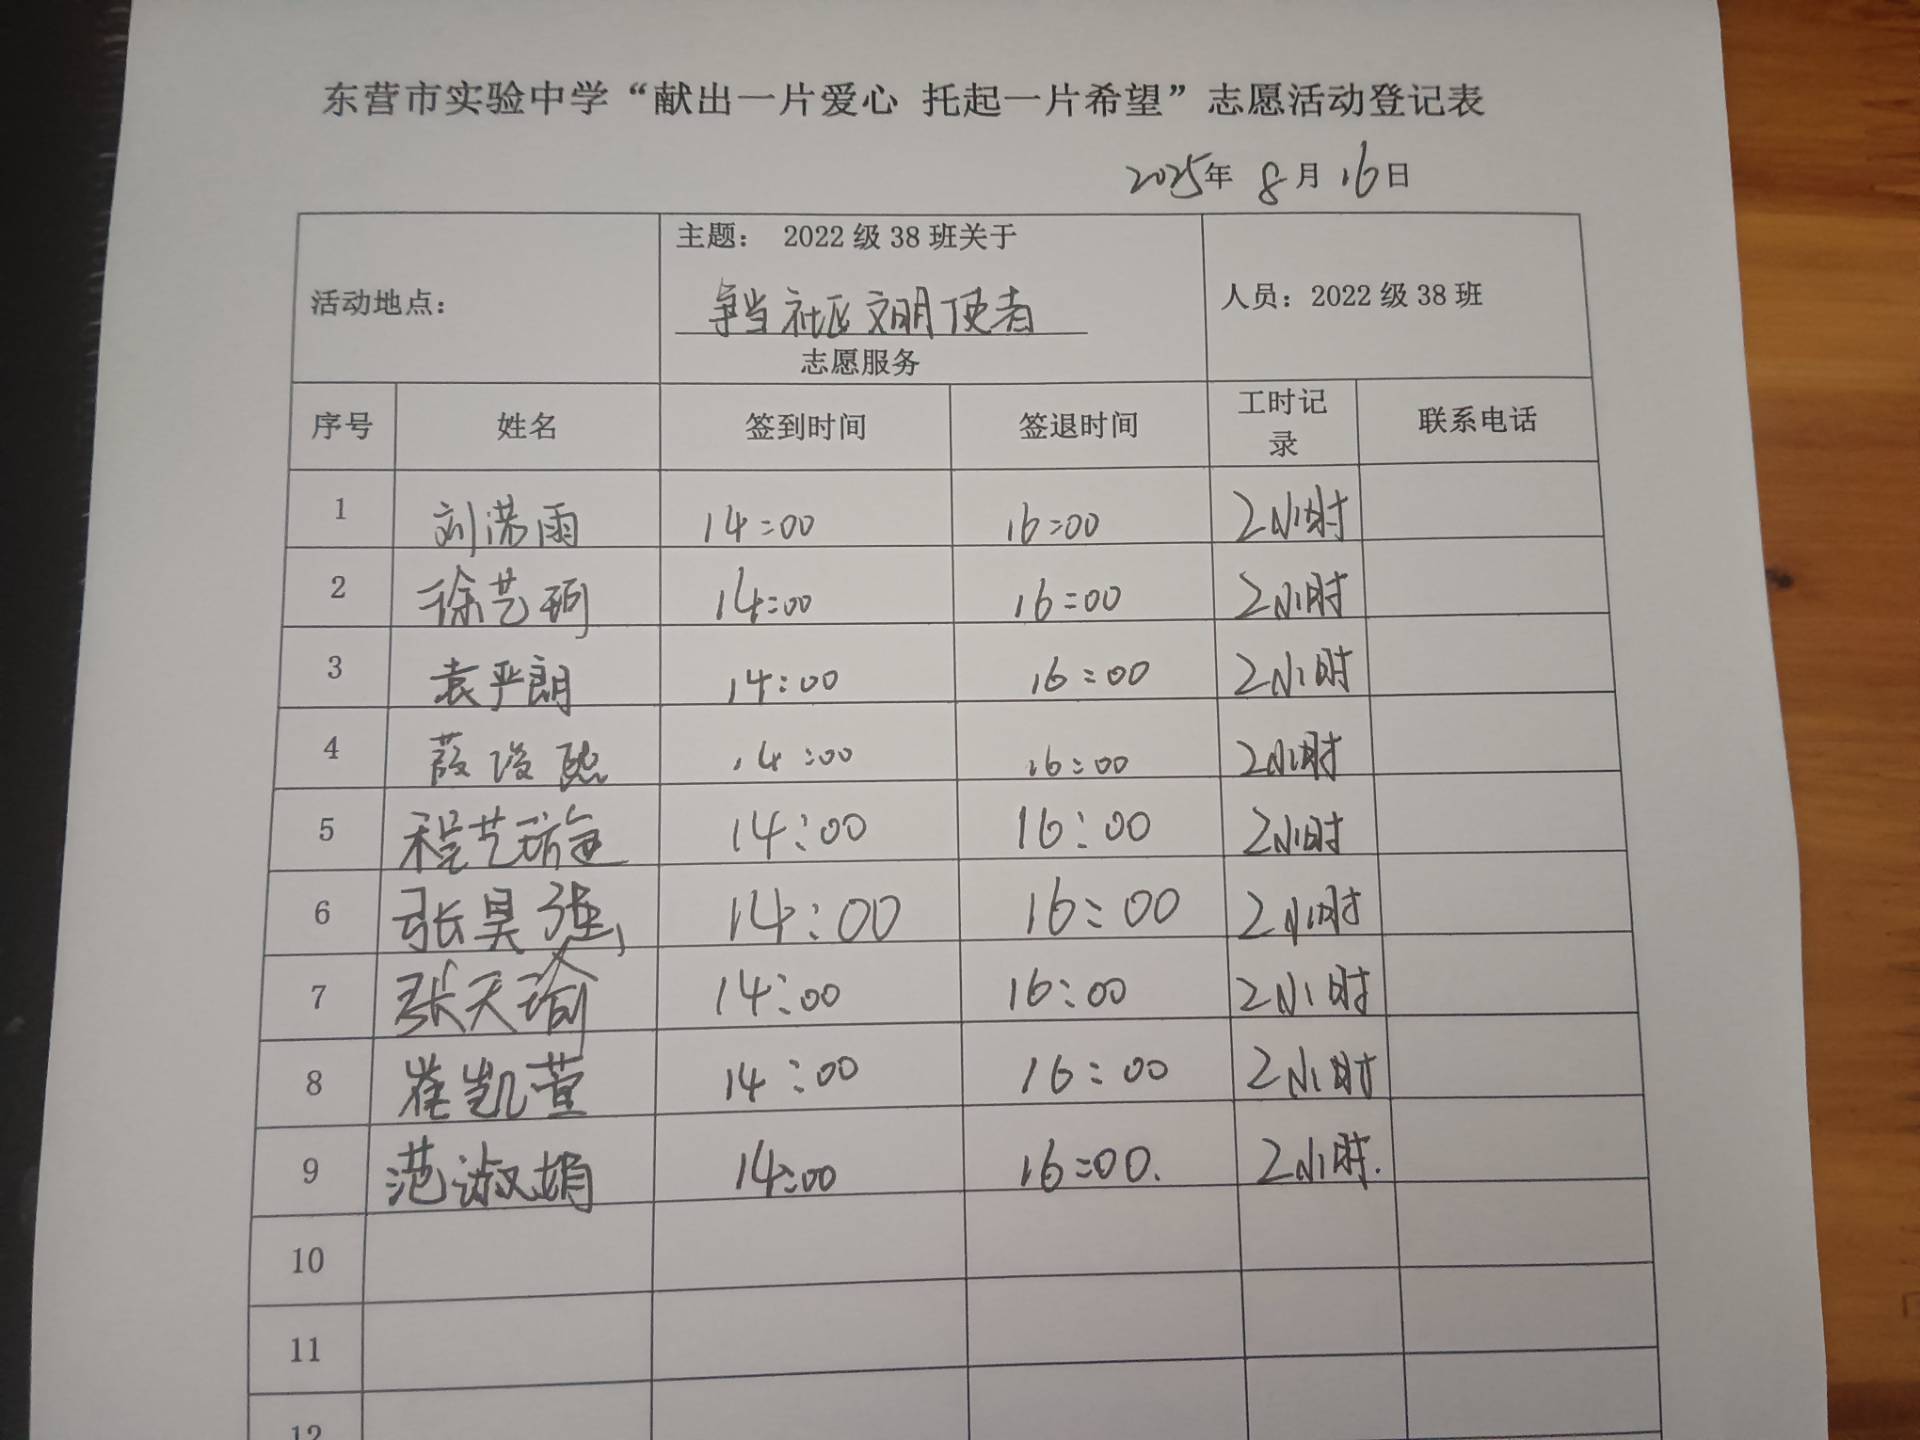 东营市实验中学“献出一片爱心 托起一片希望”志愿活动登记表
2025年 8月 16日
活动地点：
主题： 2022 级 38 班关于
争当社区文明使者
志愿服务
人员：2022 级 38 班
序号 姓名 签到时间 签退时间 工时记录 联系电话
1 刘沛雨 14:00 16:00 2小时
2 徐艺珂 14:00 16:00 2小时
3 袁严朗 14:00 16:00 2小时
4 14:00 16:00 2小时
5 程艺璇 14:00 16:00 2小时
6 张昊 14:00 16:00 2小时
7 张天瑜 14:00 16:00 2小时
8 崔凯萱 14:00 16:00 2小时
9 范淑娟 14:00 16:00. 2小时.
10
11
12